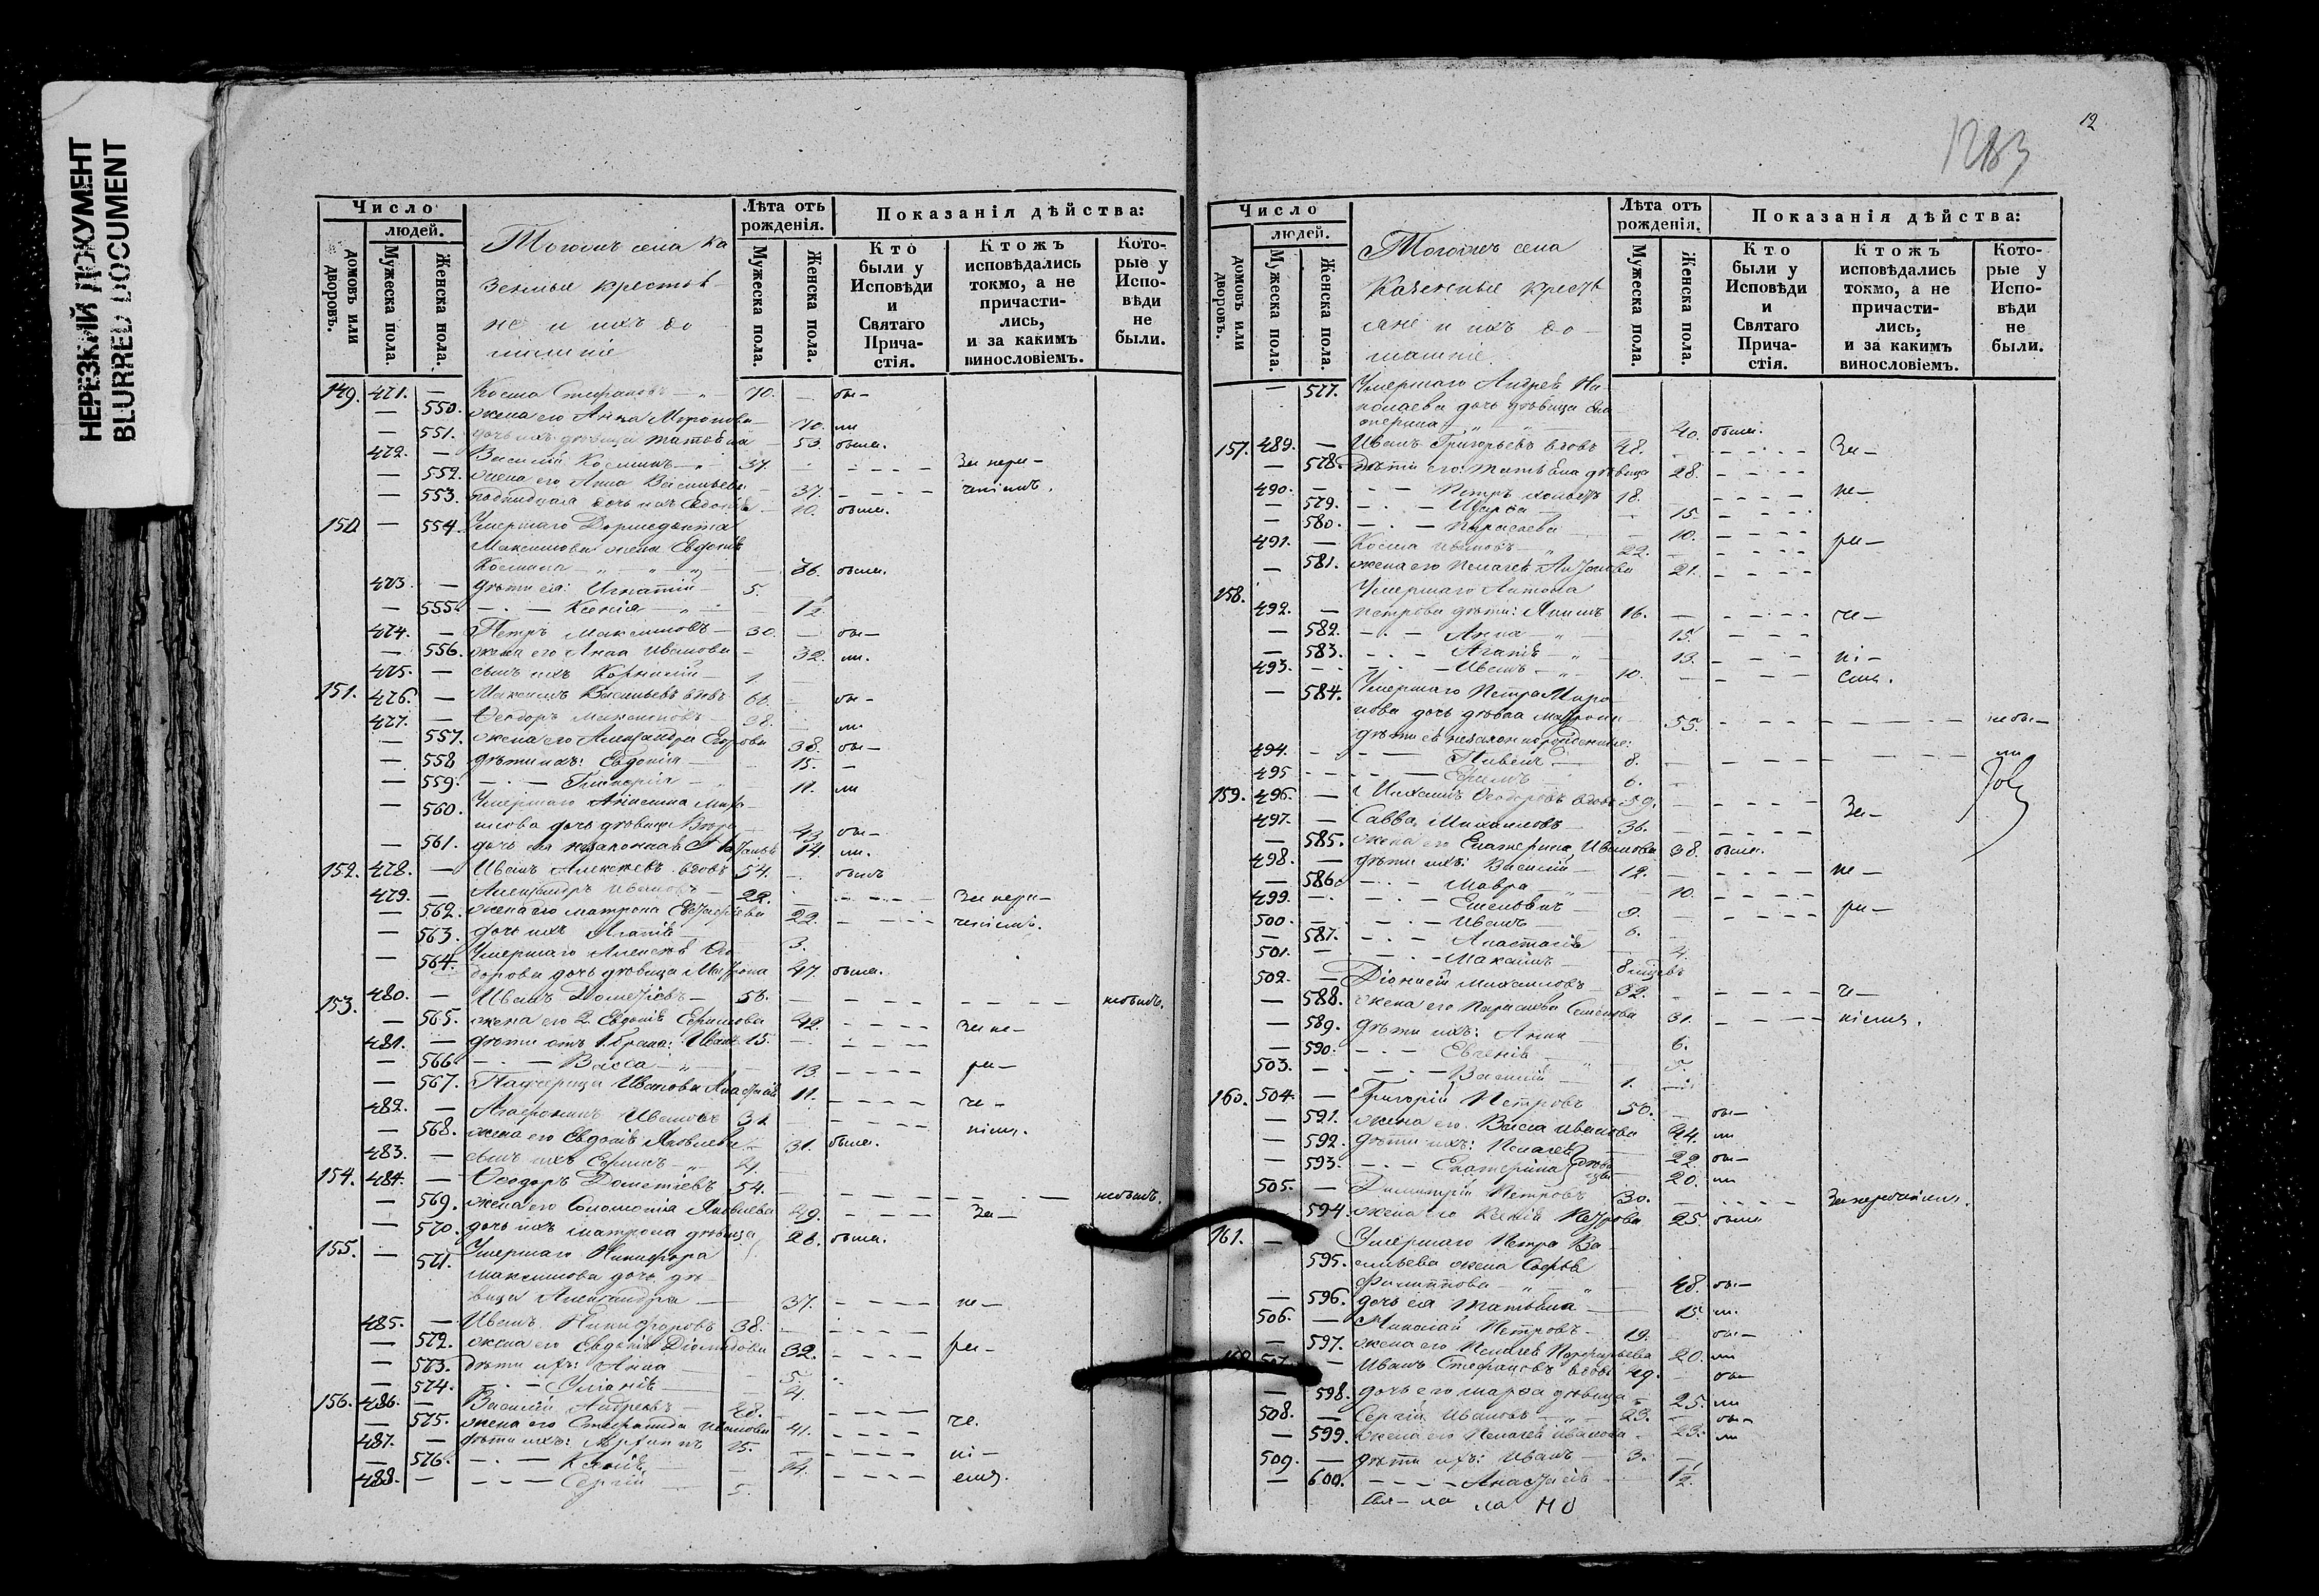 НЕРЕЗКИЙ ДОКУМЕНТ
BLURRED DOCUMENT
Число
людей.
домовъ или дворовъ.
Мужеска пола.
Женска пола.
Тогожъ села Ка
зенные крестья-
не и ихъ до
машние
Лѣта отъ рожденія.
Мужеска пола.
Женска пола.
Показанія дѣйства:
Кто были у Исповѣди и Святаго Прича-стія.
Ктожъ исповѣдались токмо, а не причасти-лись, и за какимъ винословіемъ.
Кото-рые у Испо-вѣди не были.
149. 471. — Косма Стефановъ — 70. — бы —
— 550. жена его Анна Миронова — 70. ли
— 551. дочь ихъ дѣвица Татьяна — 53. была.
472. — Василий Косминъ — 37. За нера —
— 552. жена его Анна Васильева — 37. чениемъ.
— 553. дочь ихъ Евдокія — 10. была.
150 — 554. Умершаго Дормедонта
Максимова жена Евдокія
Космина — 36. была.
473. — дѣти ея: Игнатій — 5.
— 555. — Ксенія — 12
474. — Петръ Максимовъ — 30. — бы —
— 556. жена его Анна Иванова — 32. ли.
475. — сынъ ихъ Корнилій — 1.
151. 476. — Максимъ Васильевъ вдовъ 66. — бы —
477. — Ѳеодоръ Максимовъ — 38. — ли
— 557. жена его Александра Егорова 38. бы —
— 558 дѣти ихъ: Евдокія — 15. —
— 559. — Гликерія — 11. ли
— 560. Умершаго Макси-
мова дочь дѣвица 43 бы —
— 561. дочь ея незаконная Наталья 14. ли.
152. 478. — Иванъ Алексѣевъ вдовъ 54. — былъ
479. — Александръ Ивановъ — 22. За нера —
— 562. жена его Матрона 22. чениемъ.
— 563. дочь ихъ Агапія 3.
— 564. Умершаго Алексѣя Ѳео
дорова дочь дѣвица Матрона 47. была.
153. 480. — Иванъ Дометіевъ — 56. небылъ.
— 565. жена его 2. Евдокія Ефимова 42. За не —
481. — дѣти отъ 1. брака: Иванъ 15.
— 566. — Васса — 13. ра —
— 567. Падчерица Иванова Анастасія 11. че —
482. — Иванов 31 ніемъ.
— 568. жена его Евдокія Яковлева — 31. была.
483. — сынъ ихъ Ефимъ — 4.
154. 484. — Ѳеодоръ Дометіевъ 54. небылъ.
— 569. жена его Соломонія Яковлева 49. За —
— 570. дочь ихъ Матрона дѣвица 28. была.
155. — 571. Умершаго Никифора
Максимова дочь дѣ-
вица Александра — 37. не —
485. — Иванъ Никифоровъ 38.
— 572. жена его Евдокія Діомидова 32. ра —
— 573. дѣти ихъ: Анна — 5.
— 574. — Уліанія — 4.
156. 486. — Василій Андреевъ — 48.
— 575. жена его Стефанида Иванова 41. че.
487. — дѣти ихъ: 15.
— 576. — Ксенія 14. ні —
488. — Сергій — 5. емъ.
1283
12
Число
людей.
домовъ или дворовъ.
Мужеска пола.
Женска пола.
Тогожъ села
Казенные кресть
яне и ихъ до —
машние
Лѣта отъ рожденія.
Мужеска пола.
Женска пола.
Показанія дѣйства:
Кто были у Исповѣди и Святаго Прича-стія.
Ктожъ исповѣдались токмо, а не причасти-лись, и за какимъ винословіемъ.
Кото-рые у Испо-вѣди не были.
— 577. Умершаго Андрея Ни-
колаева дочь дѣвица Ека
терина 40. была.
157. 489. — Иванъ Григорьевъ вдовъ 48. За —
— 578. дѣти его: Татьяна дѣвица 28.
490. — Петръ 18. не —
— 579. — Марѳа — 15.
— 580. — Параскева 10.
491. — Косма Ивановъ — 22. ра —
— 581. жена его Пелагея 21.
158. Умершаго Антона
492. — Петрова дѣти: 16. че —
— 582. — Анна — 15.
— 583. — Агапія — 13. ні —
493. — Иванъ — 10. емъ.
— 584. Умершаго Петра Миро
нова дочь дѣвка Матрона 55. небы —
дѣти ея незаконнорожденные:
494. — 8. ли
495 — Ефимъ — 6.
159. 496. — Михаилъ Ѳеодоровъ вдовъ 59. За —
497. — Савва Михаиловъ — 36.
— 585. жена его Екатерина Иванова 38. была.
498. — дѣти ихъ: Василій — 12. не —
— 586. — Мавра — 10.
499. — Емельянъ 9. ра —
500. — Иванъ — 6.
— 587. — Анастасія 4.
501. — Макаимъ — 8 мѣсяцъ
502. — Діонисій Михаиловъ 32. че —
— 588. жена его Параскева Семенова 31. ніемъ.
— 589. дѣти ихъ: Анна 6.
— 590. — Евгенія 5.
503. — Василій — 1.
160. 504. — Григорій Петровъ 50. бы —
— 591. жена его Васса Иванова 44. ли
— 592. дѣти ихъ: Пелагея 22. бы —
— 593. — Екатерина дѣвицы 20. ли
505. — Димитрій Петровъ 30. За нерадѣніемъ.
594. жена его Ксенія Петрова 25. была
161. — Умершаго Петра Ва-
595. сильева жена Софья
Филиппова — 48. бы —
— 596. дочь ея Татьяна — 15. ли.
506. — Николай Петровъ — 19. бы —
— 597. жена его Пелагея Порфирьева 20. ли
Иванъ Стефановъ вдовъ 49. бы
— 598. дочь его Марѳа дѣвица — 25. ли
508. — Сергій Ивановъ — 23. бы —
— 599. жена его Пелагея Иванова 23. ли
509. — дѣти ихъ: Иванъ — 3.
— 600. — Анастасія 1/2.